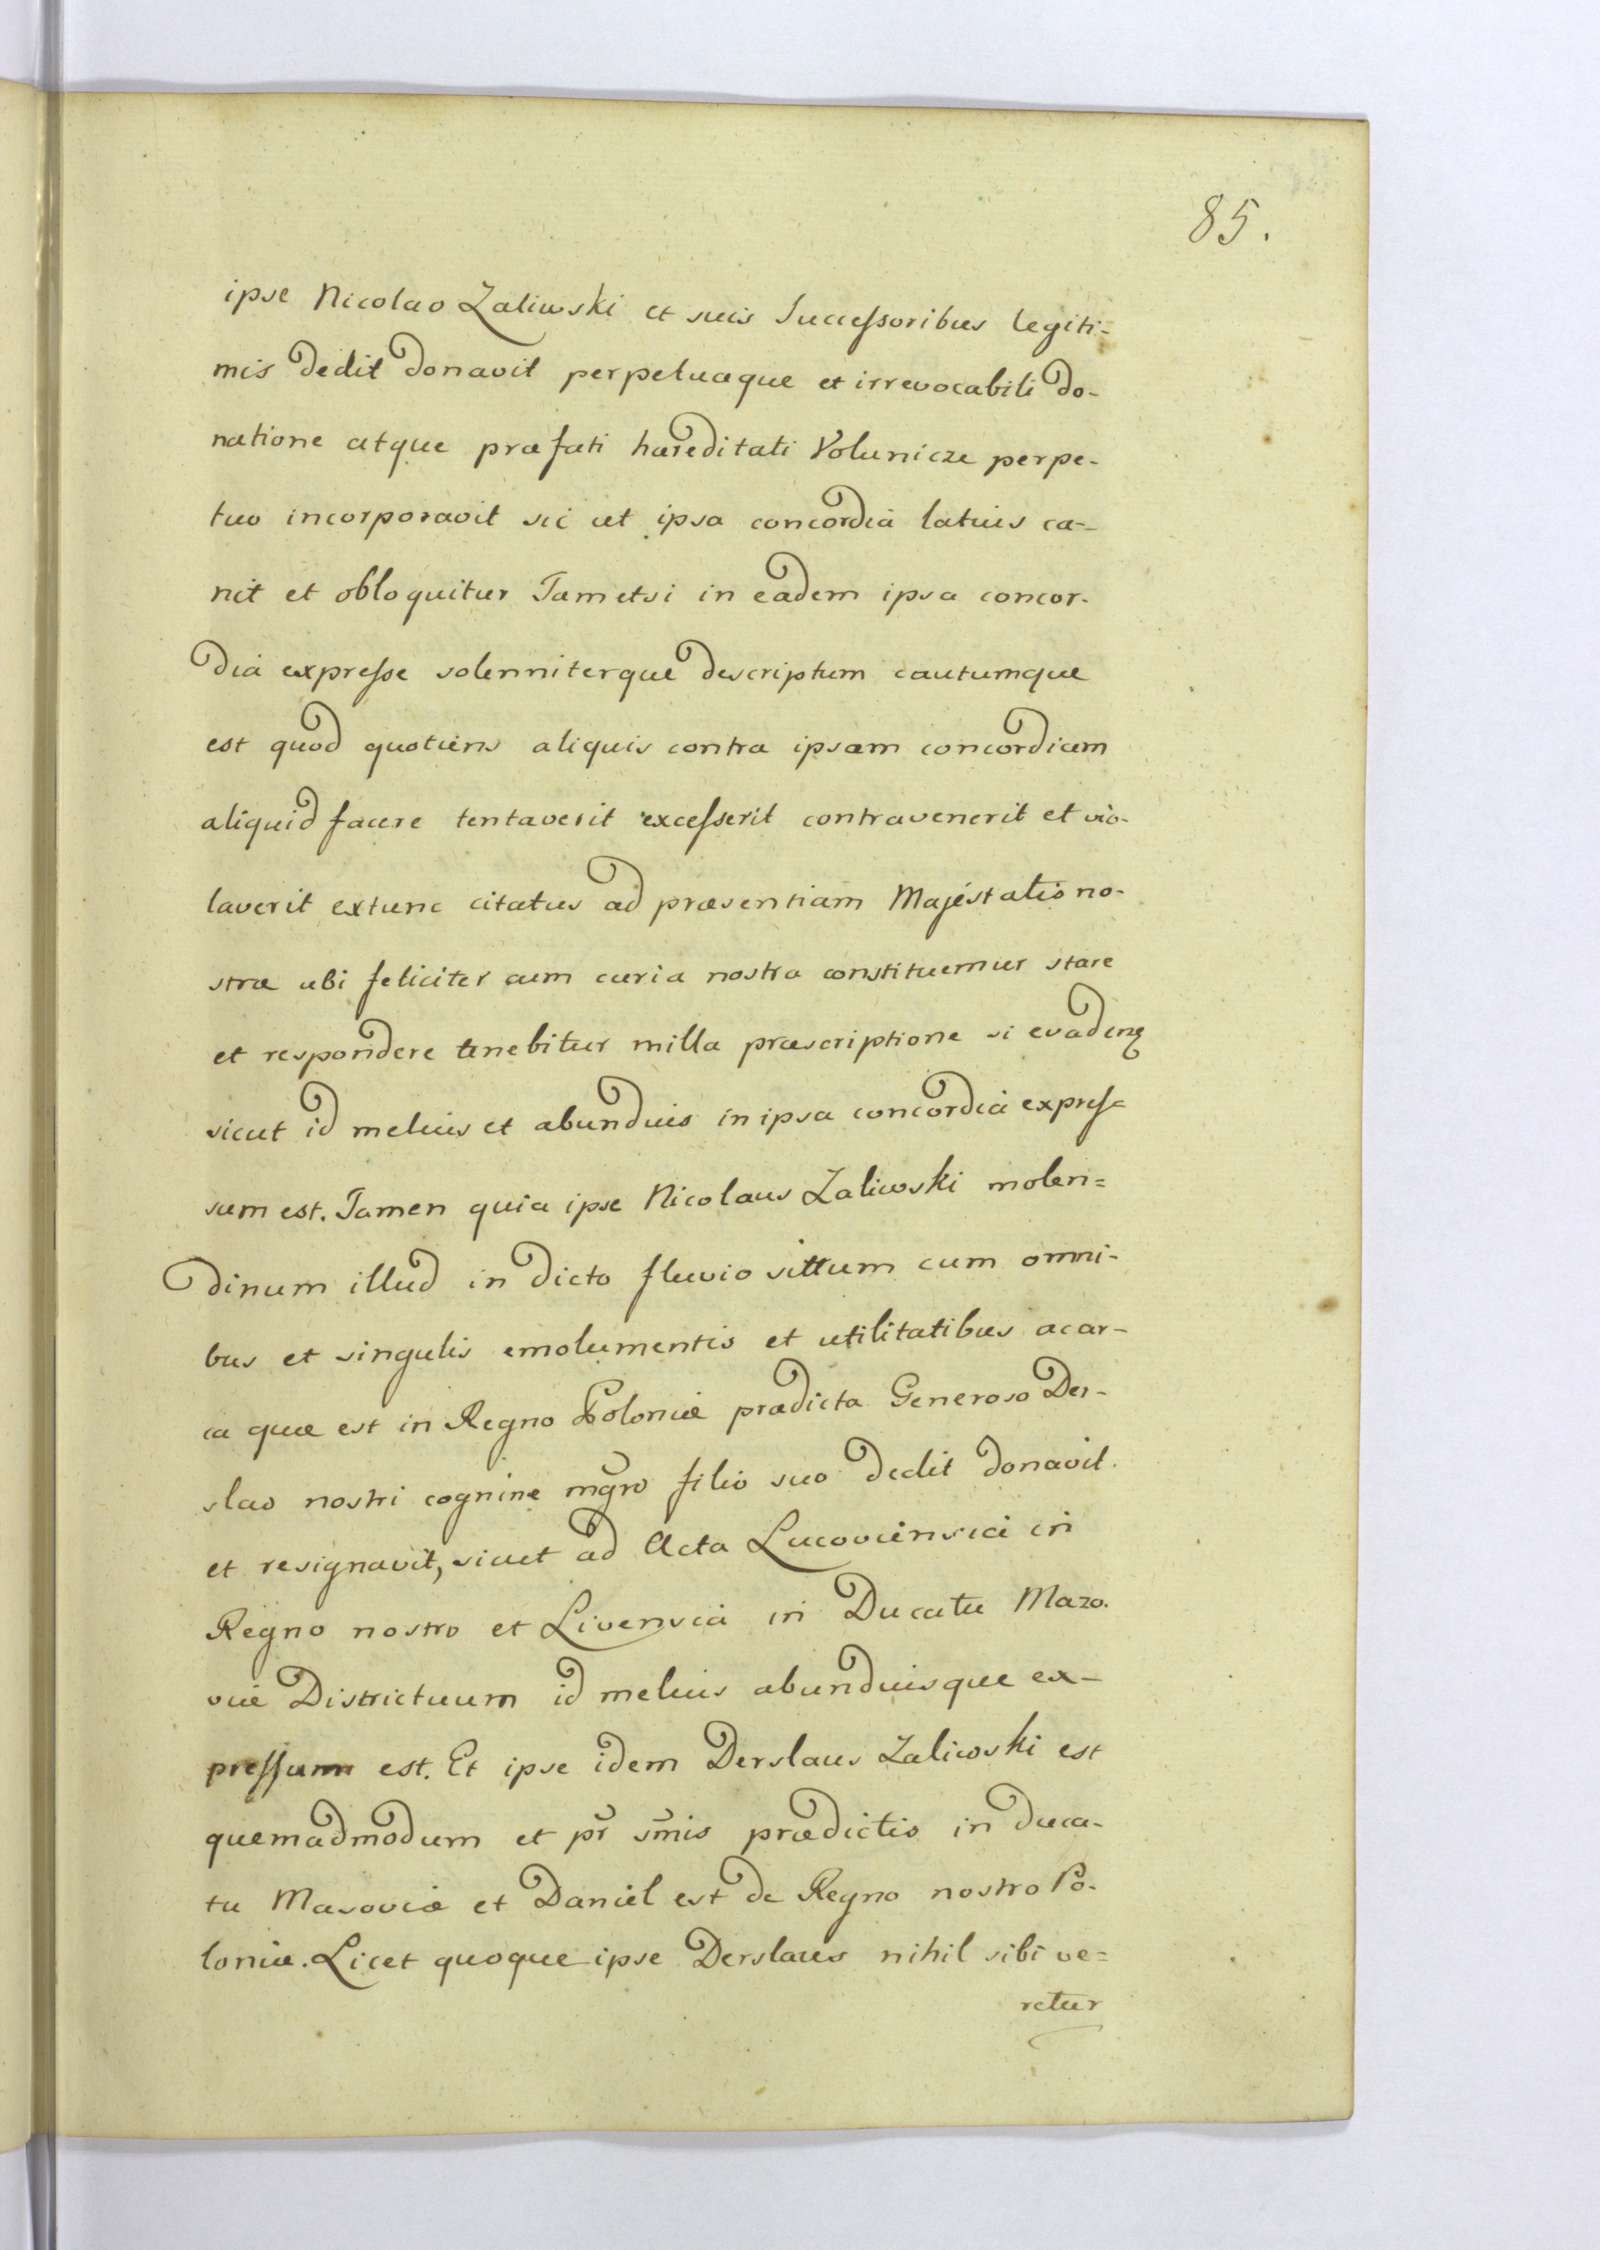 85.
ipse Nicolao Zaliwski et suis Successoribus legiti=
mis dedit donavit perpetuaque et irrevocabili do-
natione atque præfati hæreditati Volunicze perpe-
tuo incorporavit sic ut ipsa concordia latius ca-
nit et obloquitur Tametsi in eadem ipsa concor-
dia expresse solenniterque descriptum cautumque
est quod quotiens aliquis contra ipsam concordiam
aliquid facere tentaverit excesserit contravenerit et vio-
laverit extunc citatus ad præsentiam Majestatis no-
stræ ubi feliciter cum curia nostra constituemur stare
et respondere tenebitur milla præscriptione si evadenq
sicut id melius et abundius in ipsa concordia expresse
sum est. Tamen quia ipse Nicolaus Zaliwski molen=
dinum illud in dicto fluvio sittum cum omni-
bus et singulis emolumentis et utilitatibus acar-
ia quæ est in Regno Poloniæ prædicta Generoso Der-
slao nostri cognine mgro filio suo dedit donavit
et resignavit, sicut ad Acta Lucoviensia in
Regno nostro et Livensia in Ducatu Mazo.
viæ Districtuum id melius abundiusque ex-
pressum est. Et ipse idem Derslaus Zaliwski est
quemadmodum et pr smis prædictis in duca-
tu Masoviæ et Daniel est de Regno nostro Po-
loniæ. Licet quoque ipse Derslaus nihil sibi ve=
retur